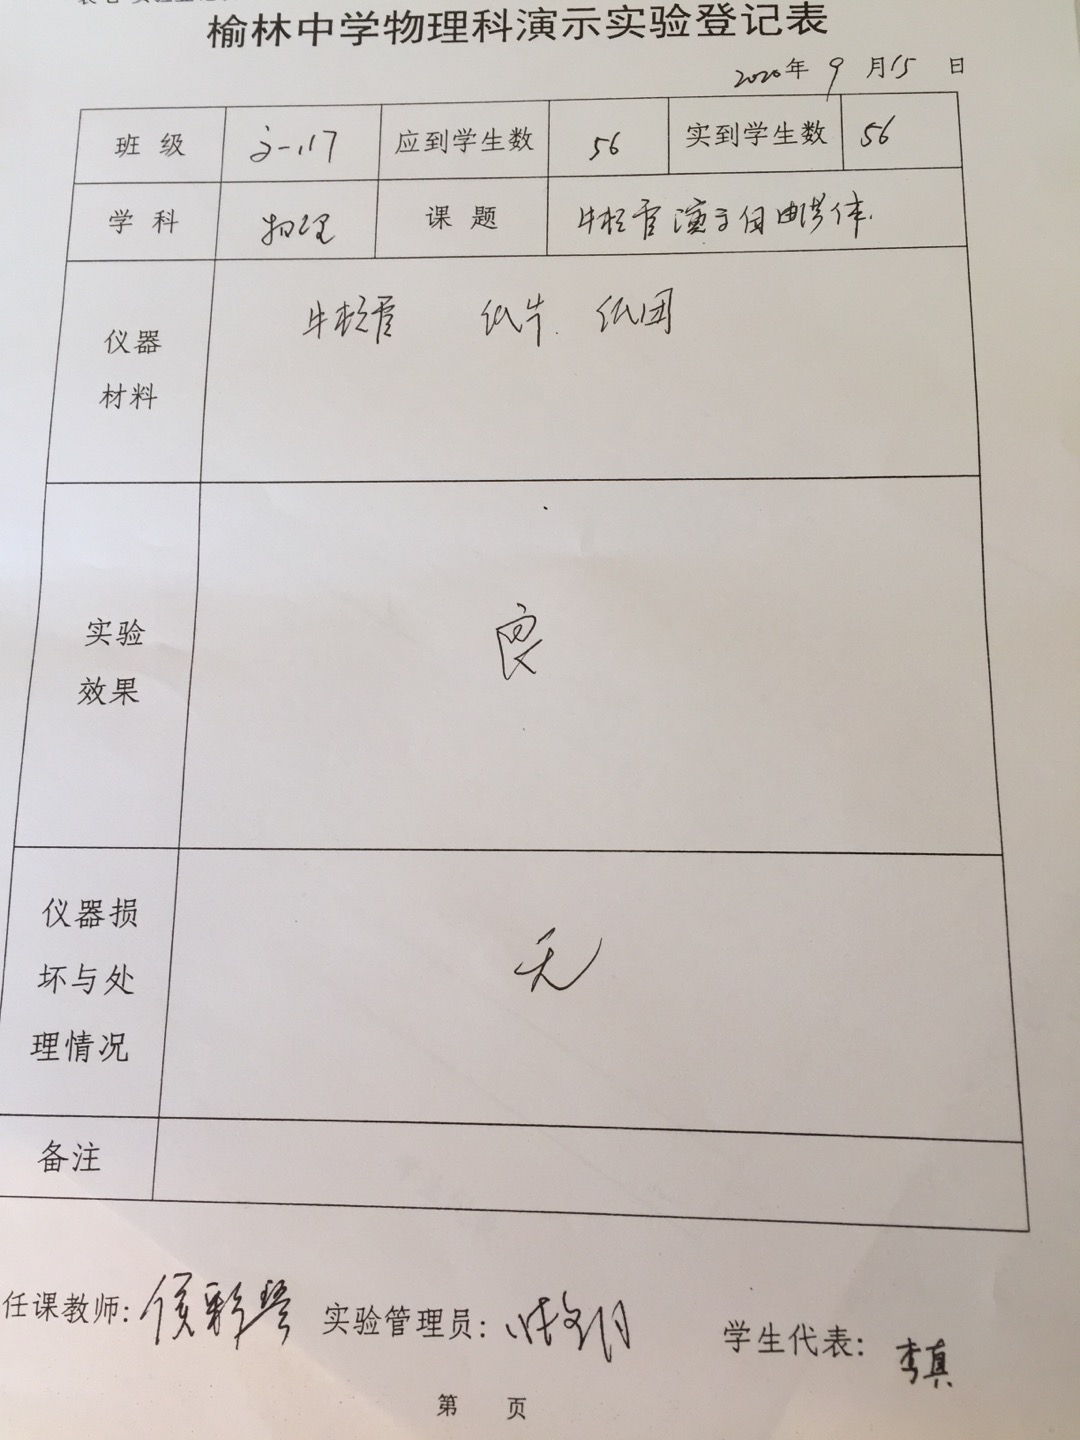 榆林中学物理科演示实验登记表
2020年 9 月 15 日
班 级 高一.17 应到学生数 56 实到学生数 56
学 科 物理 课 题 牛顿管演示自由落体.
仪器
材料
牛顿管 纸片. 纸团
实验
效果
良
仪器损
坏与处
理情况
无
备注
任课教师: 侯彩琴 实验管理员: 学生代表: 李真
第 页